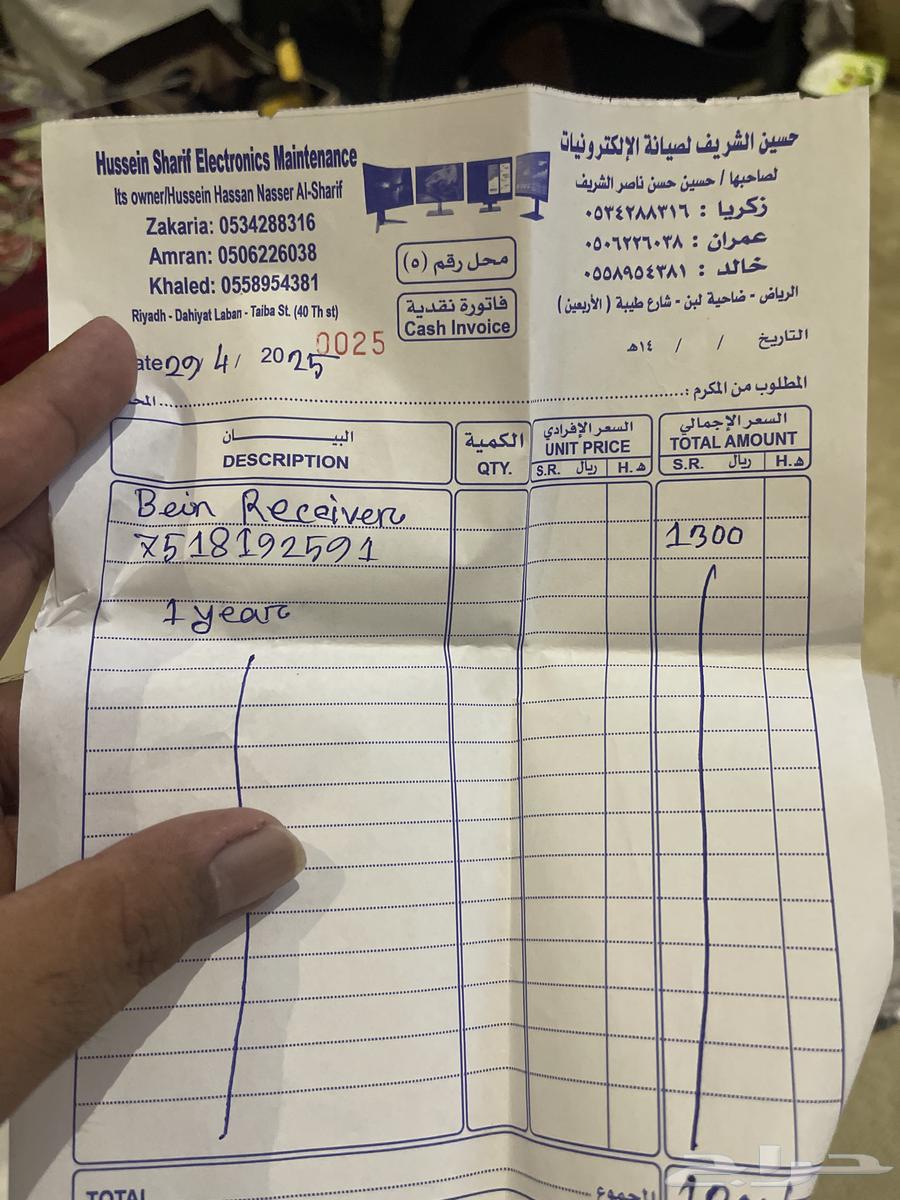 Hussein Sharif Electronics Maintenance
Its owner/Hussein Hassan Nasser Al-Sharif
Zakaria: 0534288316
Amran: 0506226038
Khaled: 0558954381
Riyadh - Dahiyat Laban - Taiba St. (40 Th st)
حسين الشريف لصيانة الإلكترونيات
لصاحبها / حسين حسن ناصر الشريف
زكريا : ٠٥٣٤٢٨٨٣١٦
عمران : ٠٥٠٦٢٢٦٠٣٨
خالد : ٠٥٥٨٩٥٤٣٨١
الرياض - ضاحية لبن - شارع طيبة (الأربعين)
محل رقم (٥)
فاتورة نقدية
Cash Invoice
0025
ate 29/4/ 2025
التاريخ / / ١٤هـ
المطلوب من المكرم :
البيــــــــان
DESCRIPTION
الكمية
QTY.
السعر الإفرادي
UNIT PRICE
S.R. ريال H. هـ
السعر الإجمالي
TOTAL AMOUNT
S.R. ريال H. هـ
Bein Receiver
7518192591 1300
1 year
TOTAL المجموع
حراج